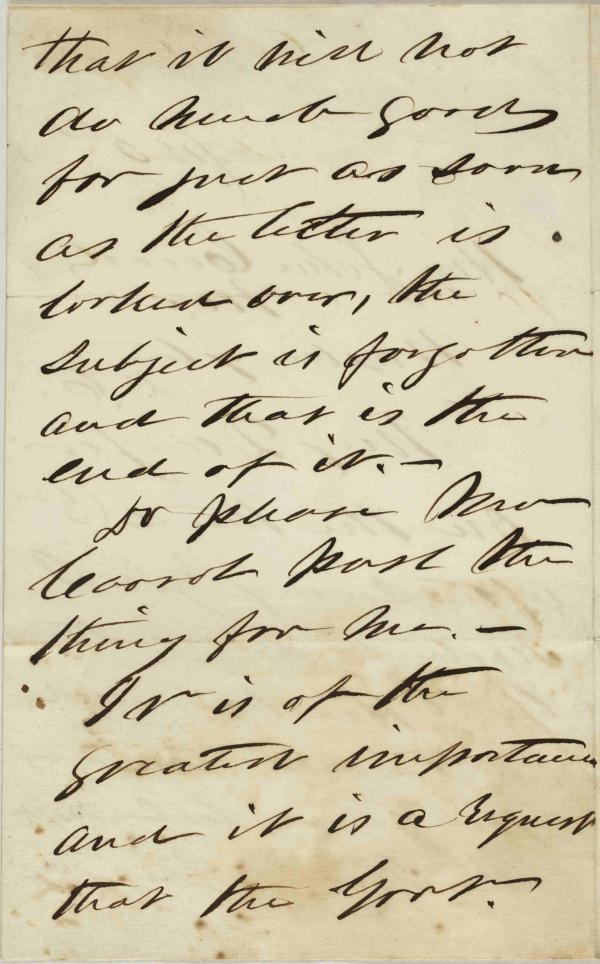 that it will not
do much good
for just as soon
as the letter is
looked over, the
subject is forgotten
and that is the
end of it. —
Do please Mr
Covode push the
thing for me. —
It is of the
greatest importance
and it is a request
that the Govt.